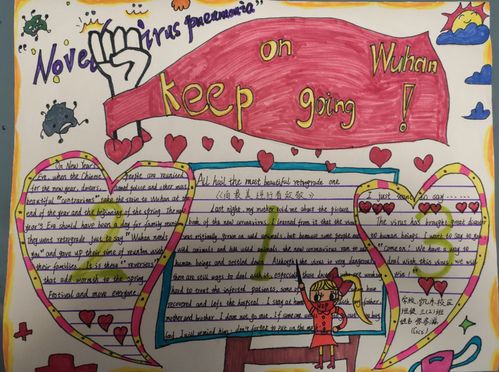 "Novel virus pneumonia"
on Wuhan
keep going !
On New Year's
Eve, when the Chinese people are reunited
for the new year, doctors, armed police and other most
beautiful "contrarians" take the train to Wuhan at the
end of the year and the beginning of the spring. The new
year's Eve should have been a day for family reunion
they went retrograde just to say "Wuhan needs
you" and gave up their time of reunion with
their families. It is these "reversers"
that add warmth to the Spring
Festival and move everyone.
All hail the most beautiful retrograde one
《向最美逆行者致敬》
Last night, my mother told me about the
think of the new coronavirus. I learned from it that the virus
was originally grown on wild animals, but because some people
sold wild animals and ate wild animals, the new coronavirus ran to
human beings and settled down. Although the virus is very dangerous
there are still ways to deal with it, especially those doctors who are working
hard to treat the infected patients, some
recovered and left the hospital. I stay at home with my father,
mother and brother. I dare not go out. If someone
out, I will remind them: don't forget to put on the mask
I just want to say
The virus has brought great disaster
to human beings. I want to say to you
"Come on! We have a way to
deal with this virus. "
学校:凯小校区
班级:三(2)班